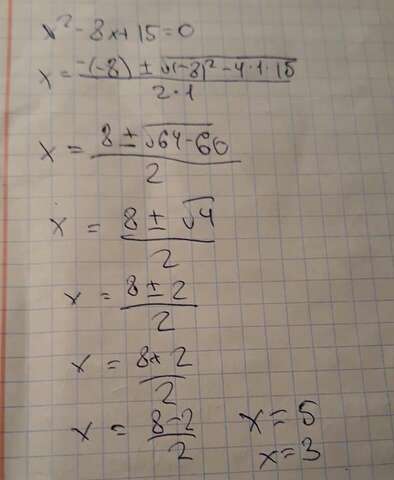 x² - 8x + 15 = 0
x = -(-8) ± √(-8)² - 4·1·15 / 2·1
x = 8 ± √64-60 / 2
x = 8 ± √4 / 2
x = 8 ± 2 / 2
x = 8 + 2 / 2
x = 8 - 2 / 2
x = 5
x = 3